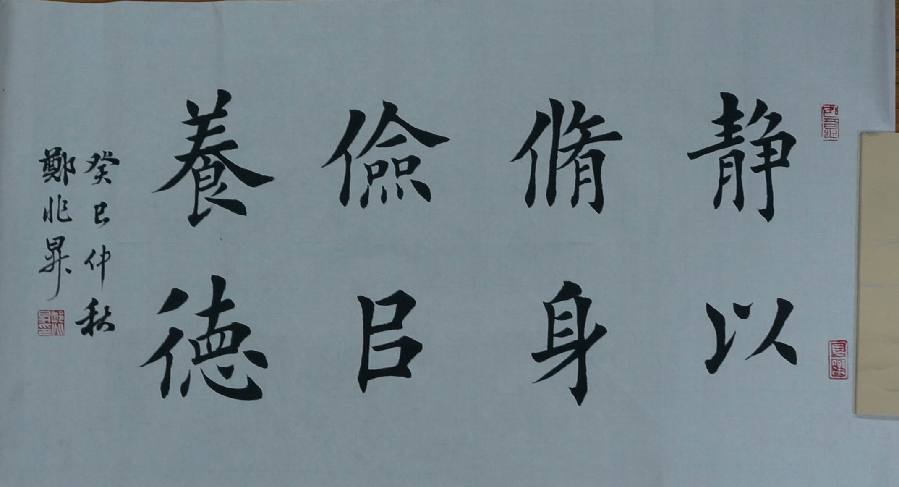 静以
脩身
儉㠯
養德
癸巳仲秋
鄭兆昇